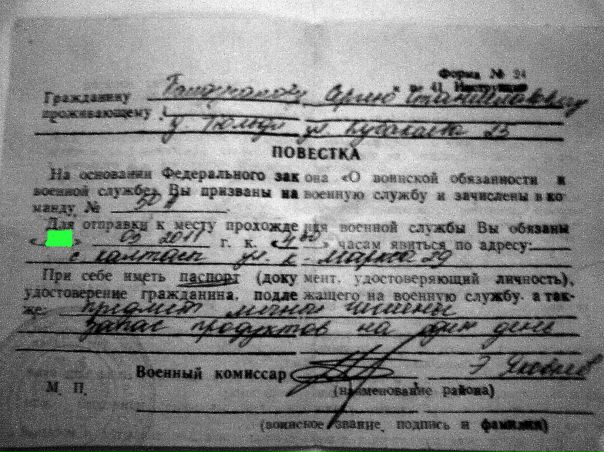 Форма № 24
к п. 41 Инструкции
Гражданину Сергею Станиславовичу
проживающему:
ул 23
ПОВЕСТКА
На основании Федерального закона «О воинской обязанности и
военной службе» Вы призваны на военную службу и зачислены в ко-
манду №
Для отправки к месту прохождения военной службы Вы обязаны
« » 03 2011 г. к « 4 00 » часам явиться по адресу:
ул. К-Маркса 29
При себе иметь паспорт (документ, удостоверяющий личность),
удостоверение гражданина, подлежащего на военную службу, а так-
же: предметы личной гигиены
запас продуктов на один день
Военный комиссар Э Яковлев
М. П. (наименование района)
(воинское звание, подпись и фамилия)